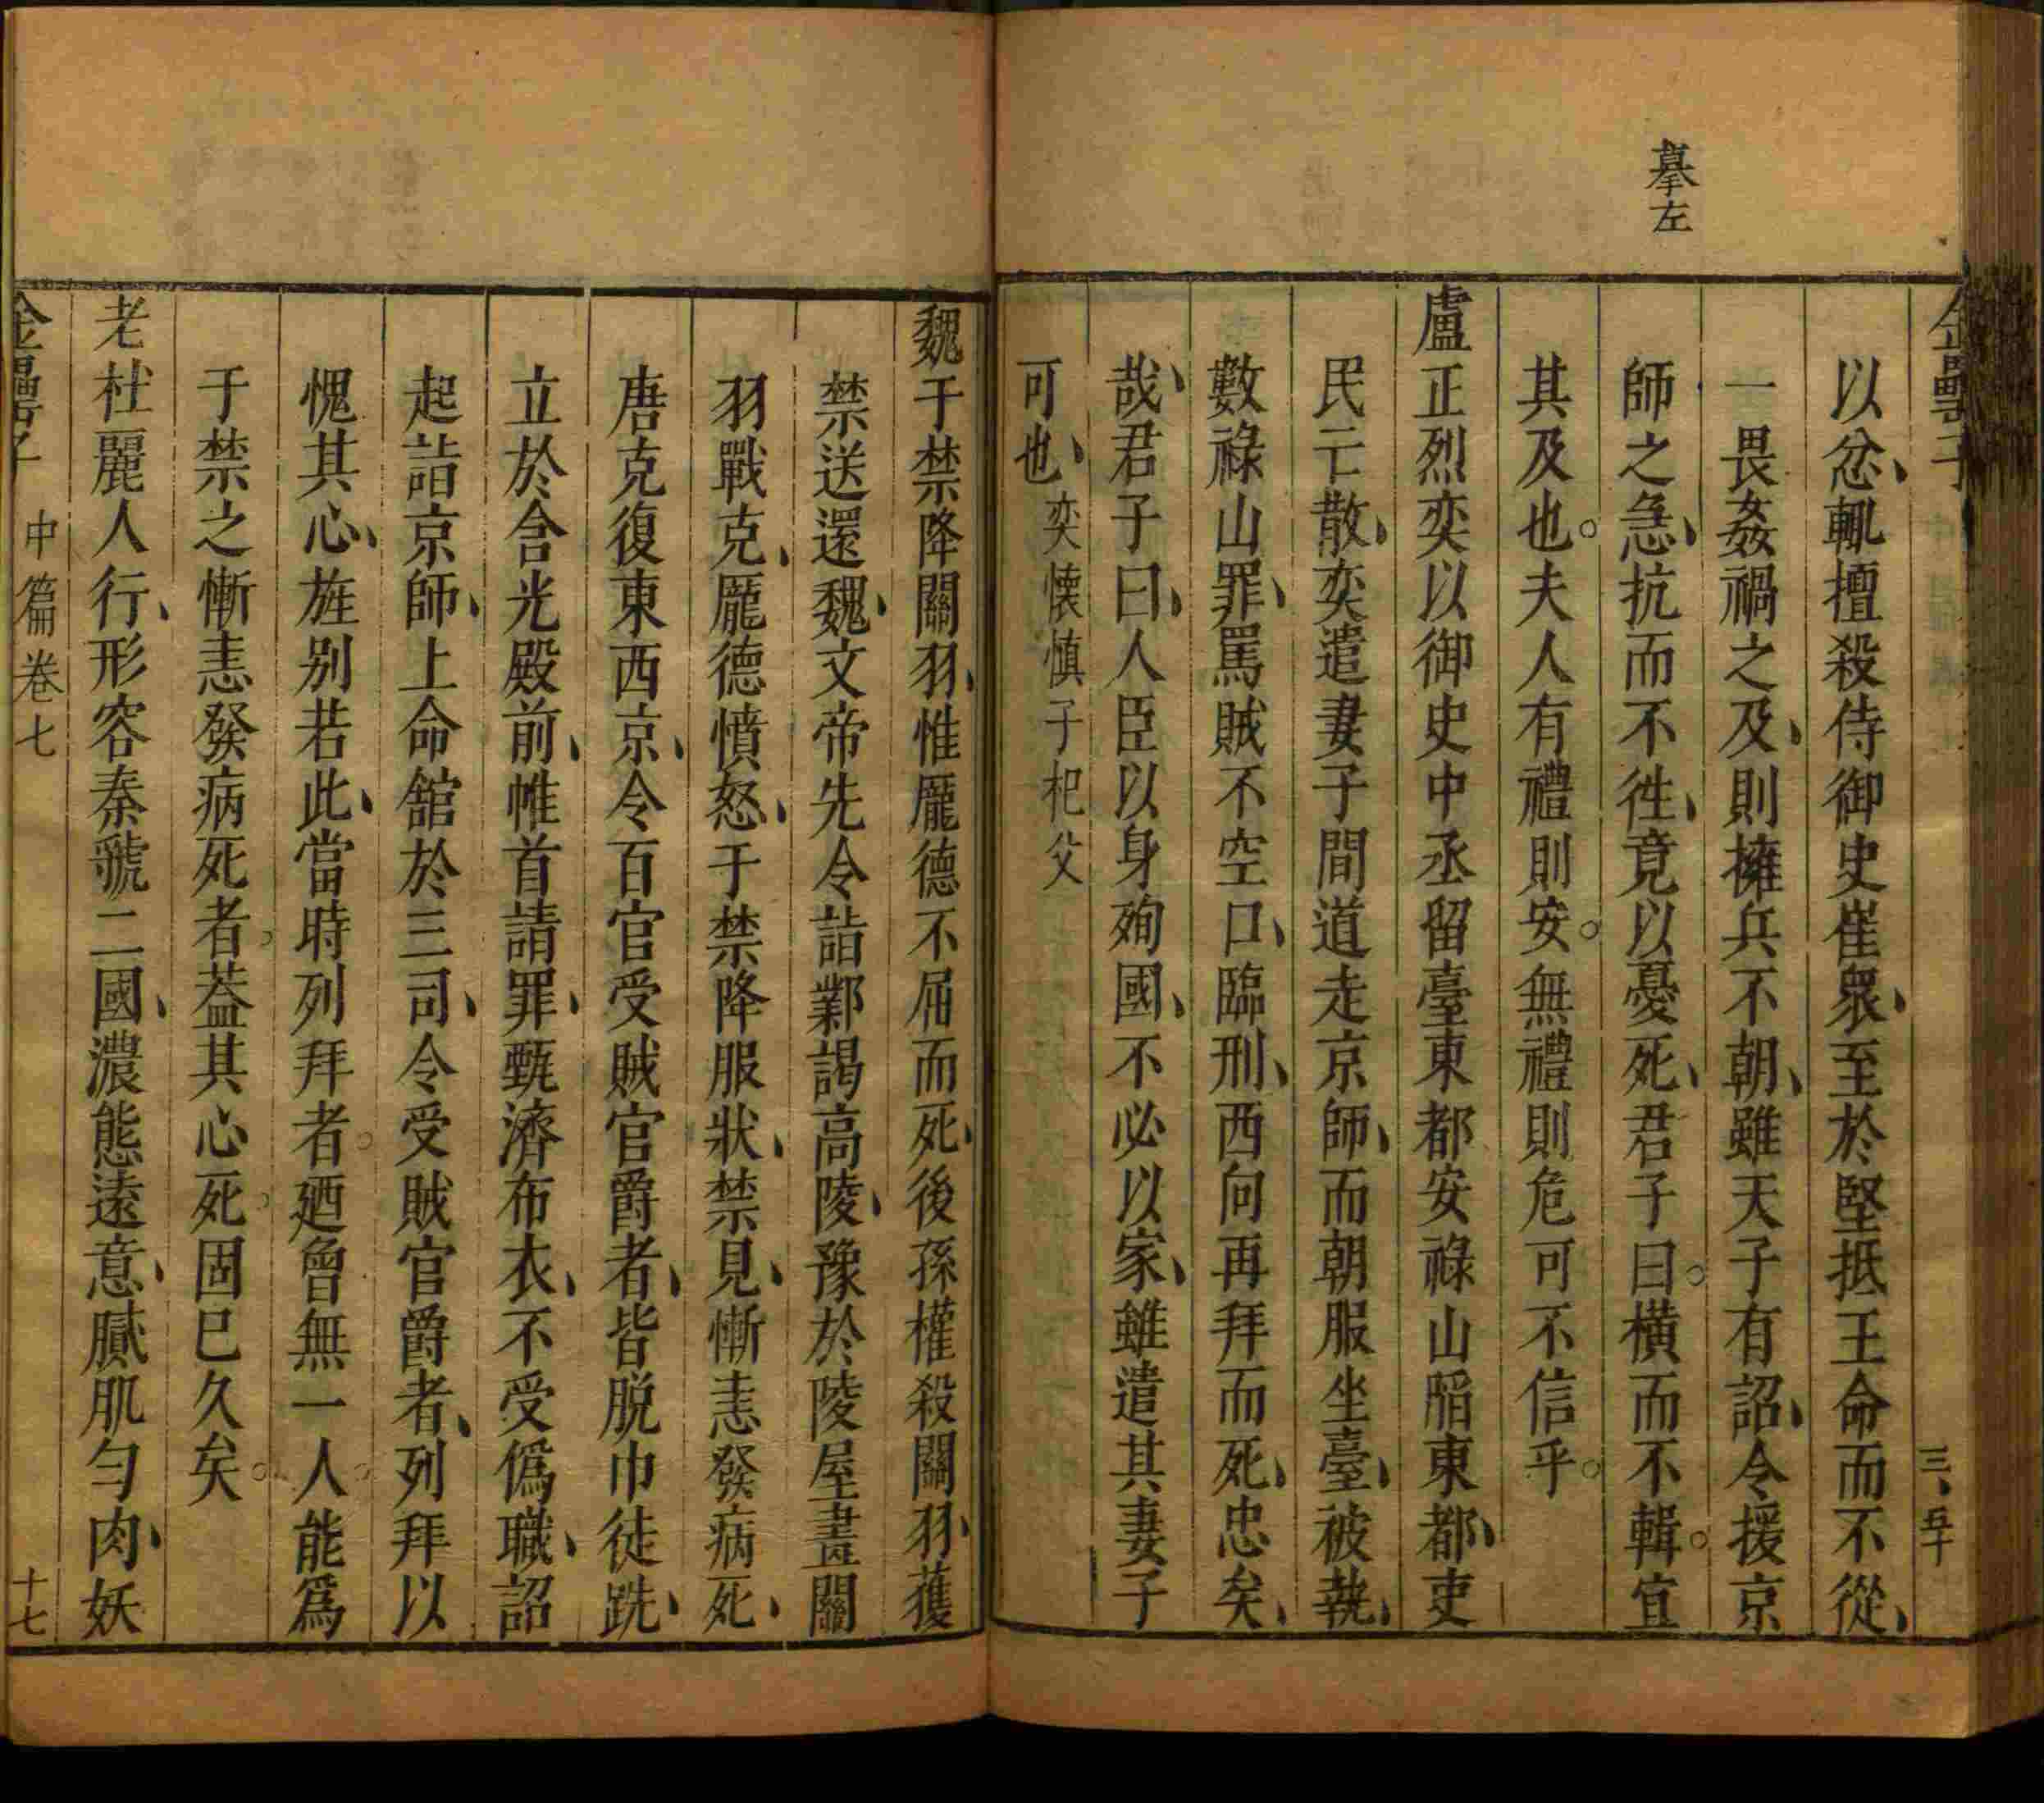 摹左
以忿輒擅殺侍御史崔衆至於堅抵王命而不從
一畏姦禍之及則擁兵不朝雖天子有詔令援京
師之急抗而不徃竟以憂死君子曰橫而不輯宜
其及也夫人有禮則安無禮則危可不信乎
盧正烈奕以御史中丞留臺東都安祿山䧟東都吏
民亡散奕遣妻子間道走京師而朝服坐臺被執
數祿山罪罵賊不空口臨刑西向再拜而死忠矣
哉君子曰人臣以身殉國不必以家雖遣其妻子
可也奕懐慎子杞父
魏于禁降關羽惟龐德不屈而死後孫權殺關羽獲
禁送還魏文帝先令詣鄴謁高陵豫於陵屋畫關
羽戰克龐德憤怒于禁降服狀禁見慚恚發病死
唐克復東西京令百官受賊官爵者皆脫巾徒跣
立於含光殿前帷首請罪甄濟布衣不受僞職詔
起詣京師上命舘於三司令受賊官爵者列拜以
愧其心旌别若此當時列拜者廼曾無一人能爲
于禁之慚恚發病死者葢其心死固巳久矣
老杜麗人行形容秦虢二國濃態遠意膩肌勻肉妖
金罍子
中篇卷七
十七